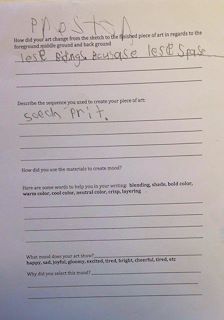 How did your art change from the sketch to the finished piece of art in regards to the
foreground middle ground and back ground
lese
lese
Describe the sequence you used to create your piece of art:
scech prit.
How did you use the materials to create mood?
Here are some words to help you in your writing blending, shade, bold color,
warm color, cool color, neutral color, crisp, layering
What mood does your art show?
happy, sad, joyful, gloomy, excited, tired, bright, cheerful, tired, etc
Why did you select this mood?